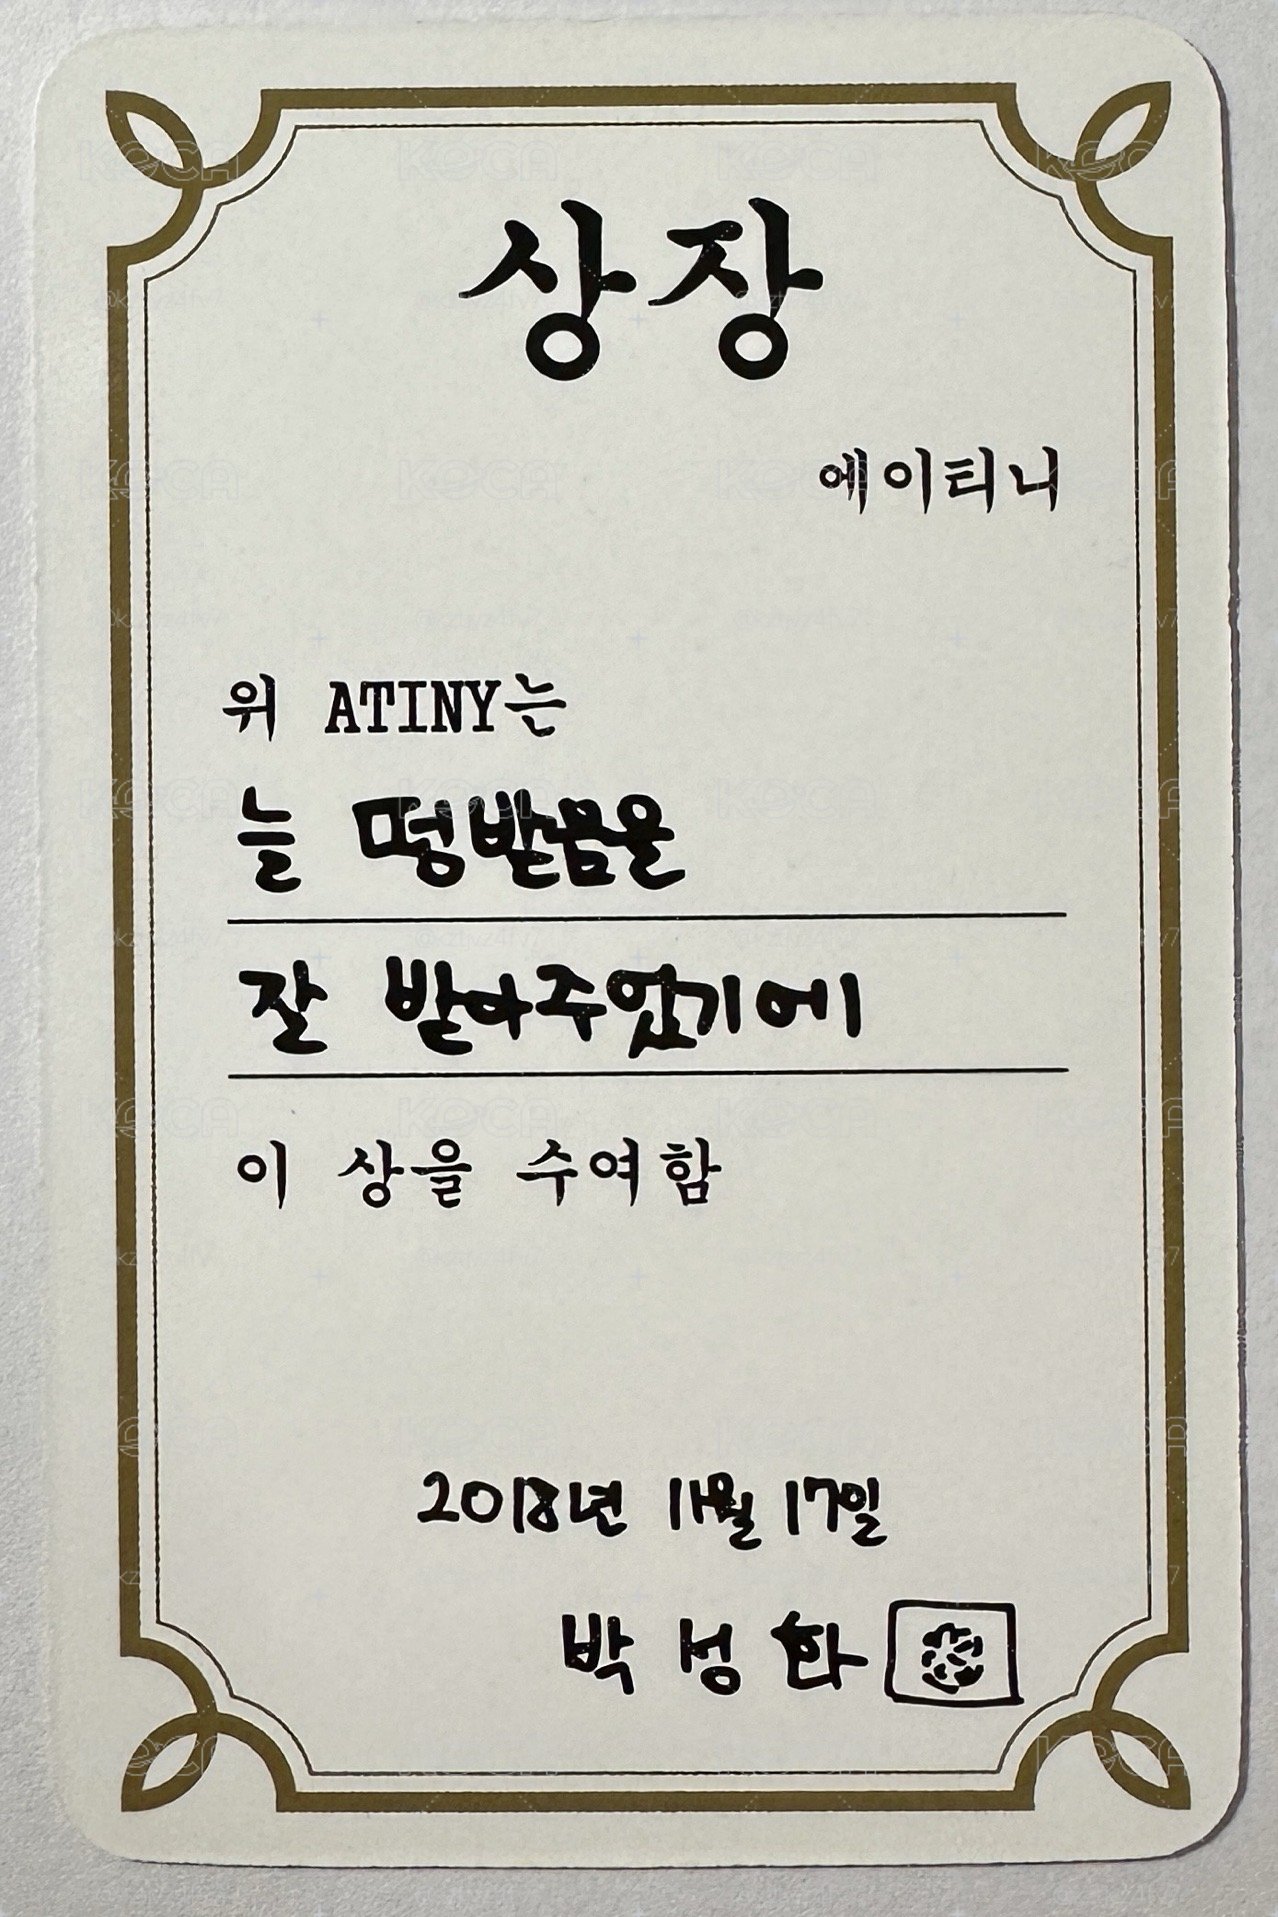 상장
에이티니
위 ATINY는
늘 떵발끔을
잘 받아주었기에
이 상을 수여함
2018년 11월 17일
박성화